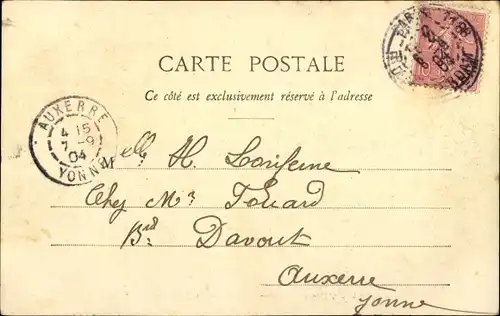 CARTE POSTALE
Ce côté est exclusivement réservé à l'adresse
AUXERRE
4 15
7 -9
04
YONNE
Melle H. Loriferne
Chez Mr Touard
Bd Davout
Auxerre
Yonne